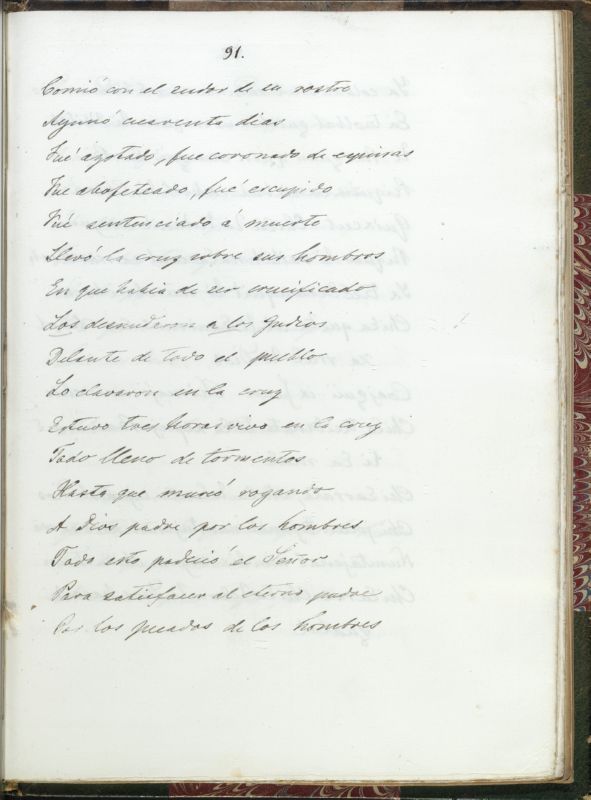 91.
Comió con el sudor de su rostro
Ayunó cuarenta dias
Fué azotado, fue coronado de espinas
Fue abofeteado, fué escupido
Fué sentenciado á muerte
Llevó la cruz sobre sus hombros
En que habia de ser crucificado
Los desnudaron a los Judios
Delante de todo el pueblo
Lo clavaron en la cruz
Estuvo tres horas vivo en la cruz
Todo lleno de tormentos
Hasta que murió rogando
A Dios padre por los hombres
Todo esto padeció el Señor
Para satisfacer al eterno padre
Por los pecados de los hombres